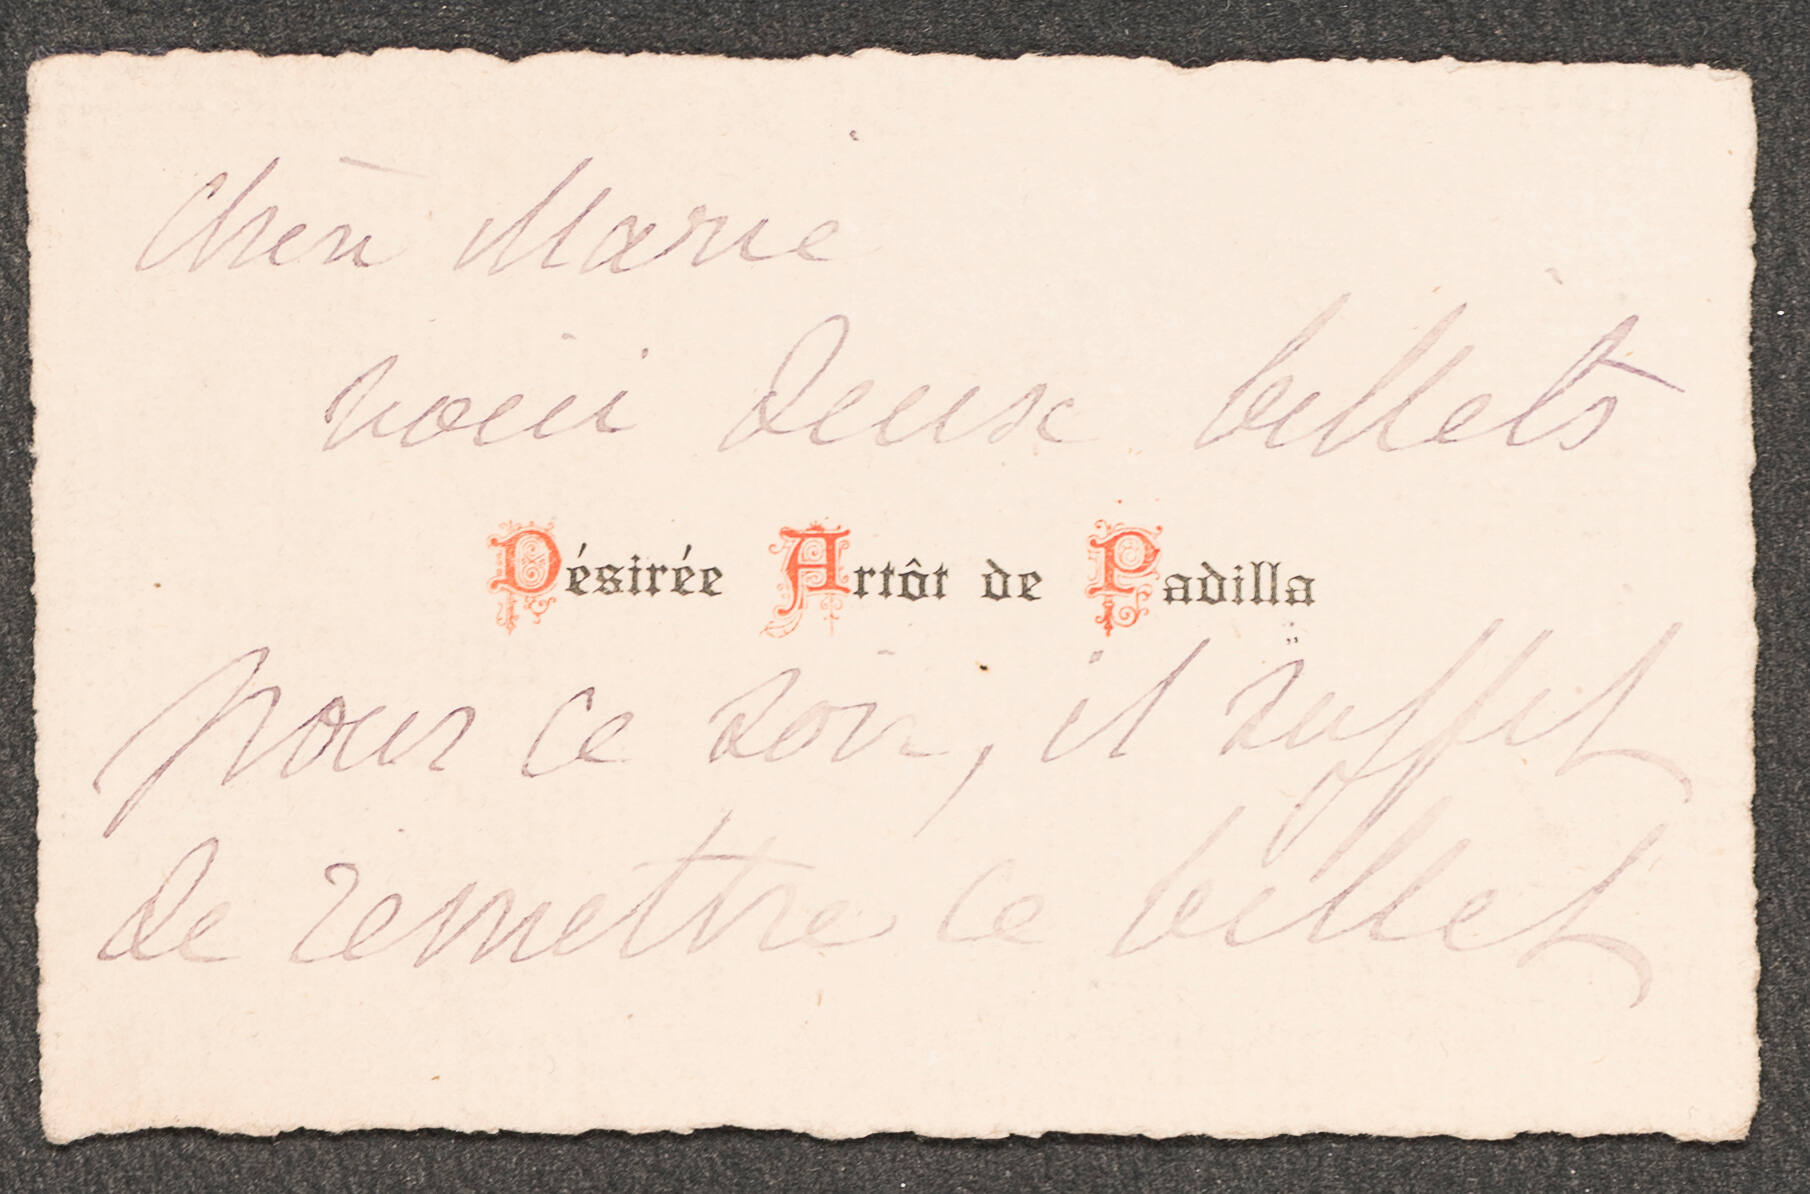 Chère Marie
voici deux billets
Désirée Artôt de Padilla
pour ce soir, il suffit
de remettre ce billet